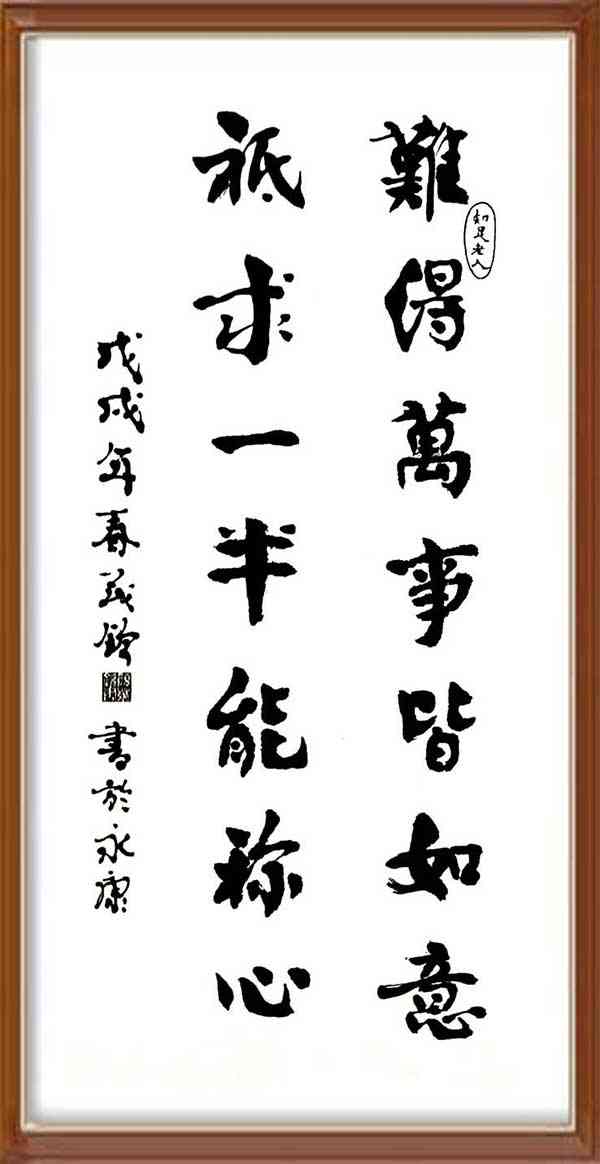 難得萬事皆如意
知足老人
祇求一半能称心
戊戌年春義鏘書於永康